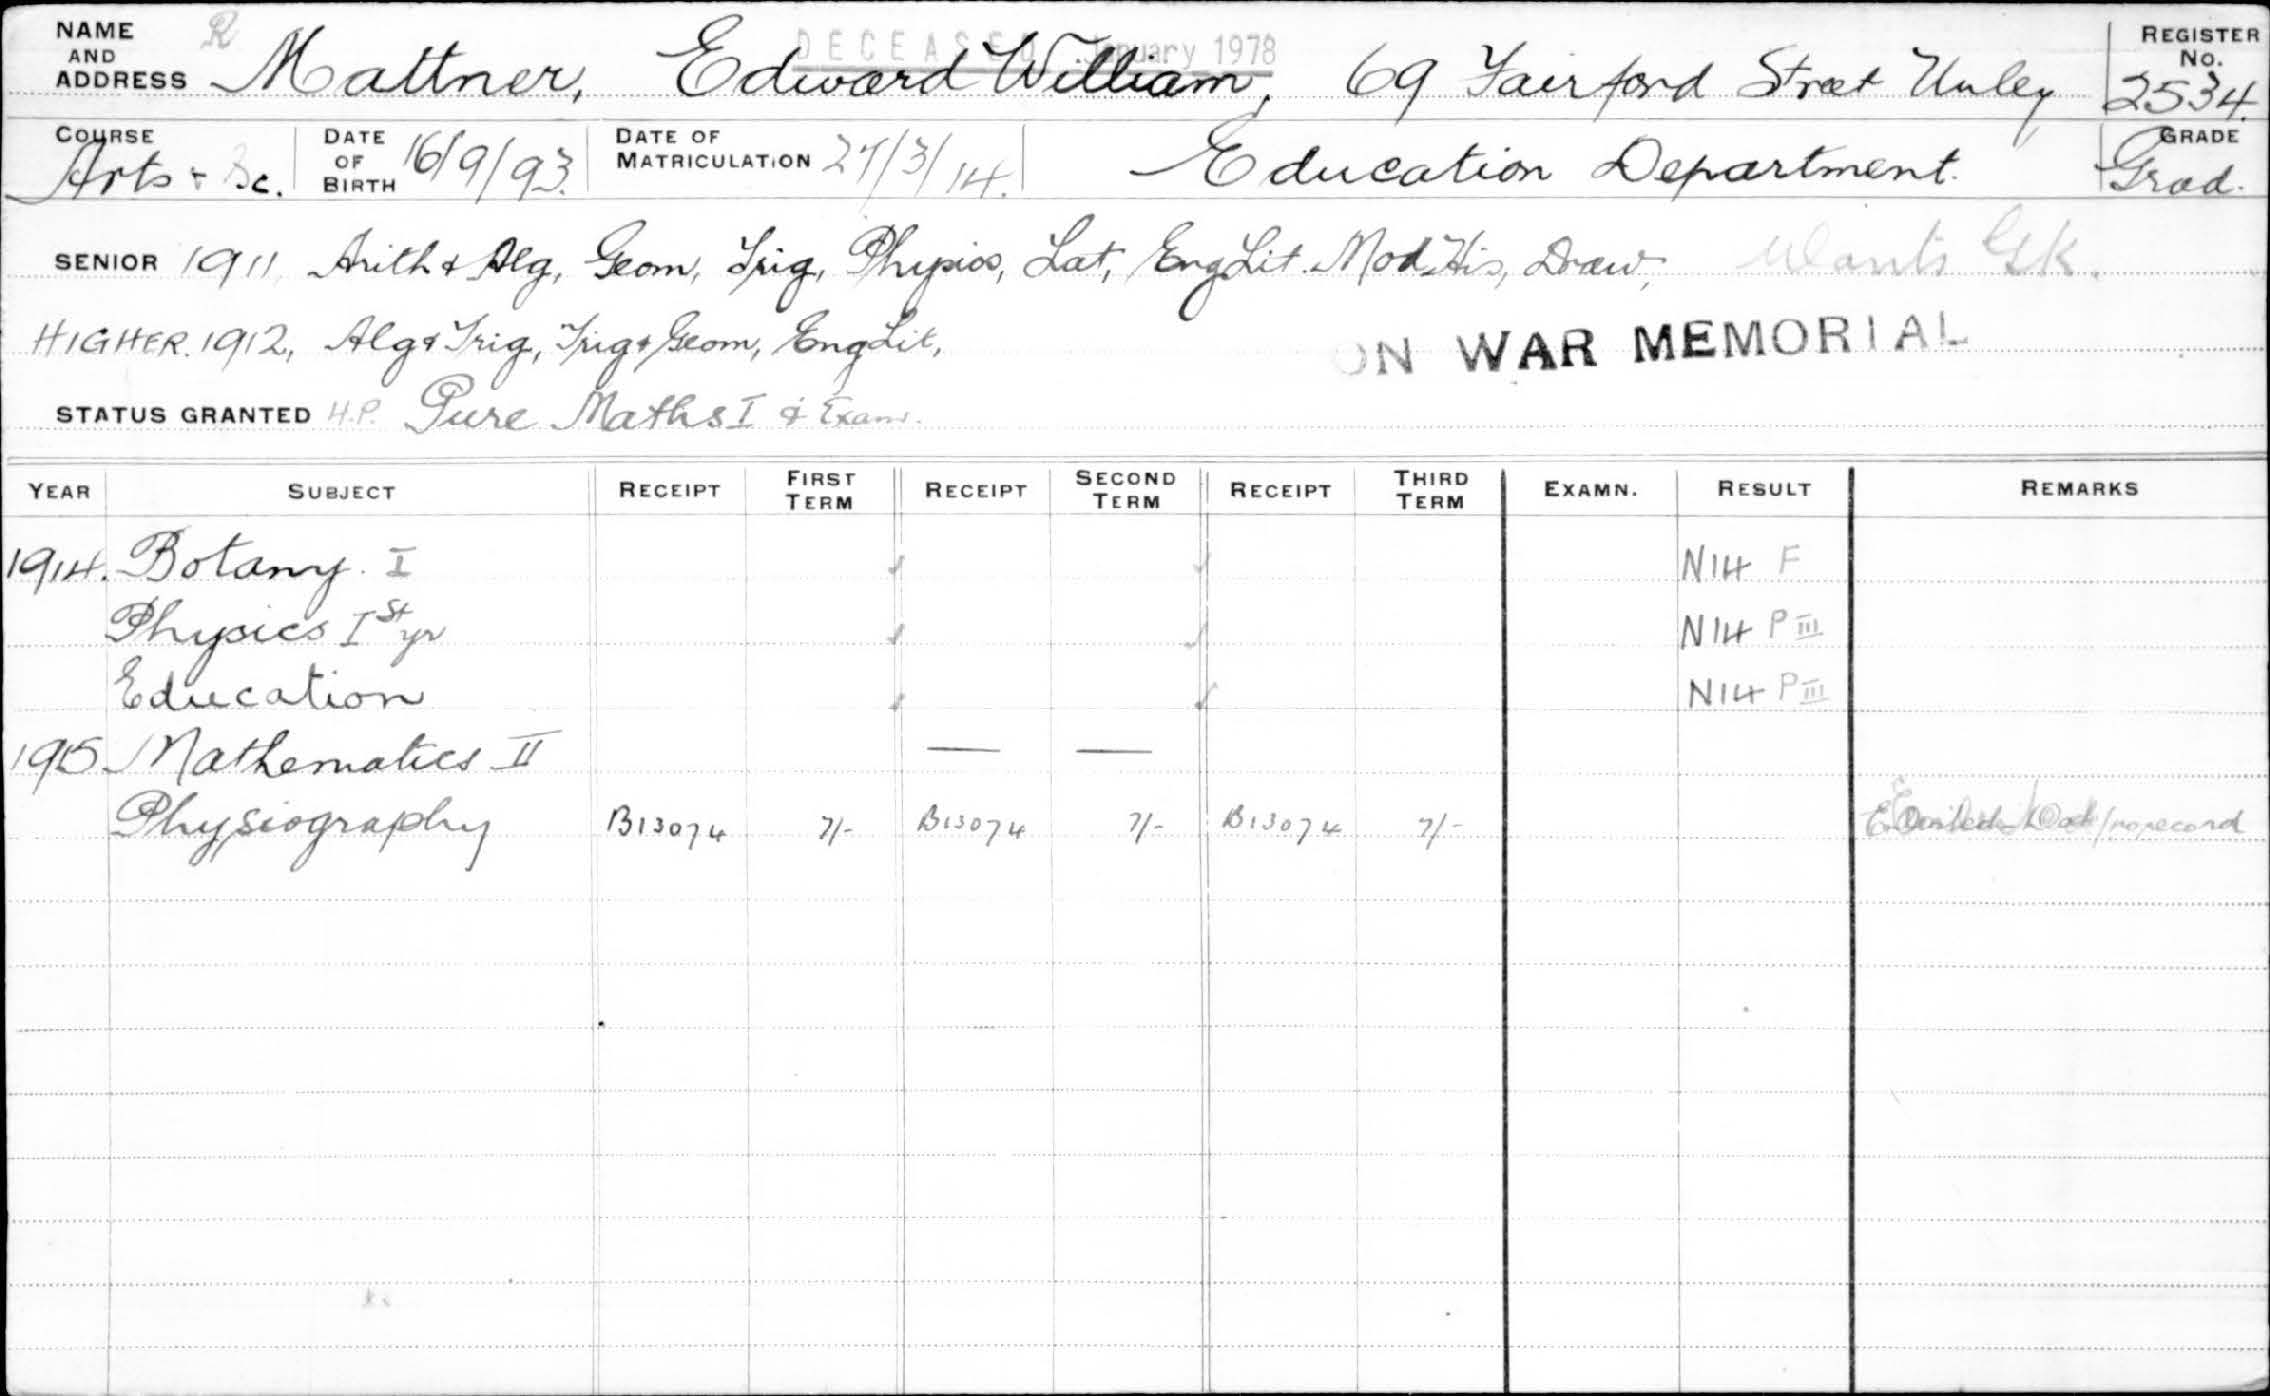 NAME AND ADDRESS R Mattner, Edward William, 69 Fairford Street Unley
DECEASED January 1978
REGISTER No. 2534
COURSE Arts + Sc. DATE OF BIRTH 16/9/93. DATE OF MATRICULATION 27/3/14. Education Department. GRADE Grad.
SENIOR 1911 Arith & Alg, Geom, Trig, Physics, Lat, Eng Lit. Mod His, Draw, Wants Gk.
HIGHER. 1912, Alg & Trig, Trig & Geom, Eng Lit,
ON WAR MEMORIAL
STATUS GRANTED H.P. Pure Maths I & Exam.
YEAR SUBJECT RECEIPT FIRST TERM RECEIPT SECOND TERM RECEIPT THIRD TERM EXAMN. RESULT REMARKS
1914. Botany. I ✓ ✓ N14 F
Physics Ist yr ✓ ✓ N14 P III
Education ✓ ✓ N14 P III
1915 Mathematics II — —
Physiography B13074 7/- B13074 7/- B13074 7/- no record